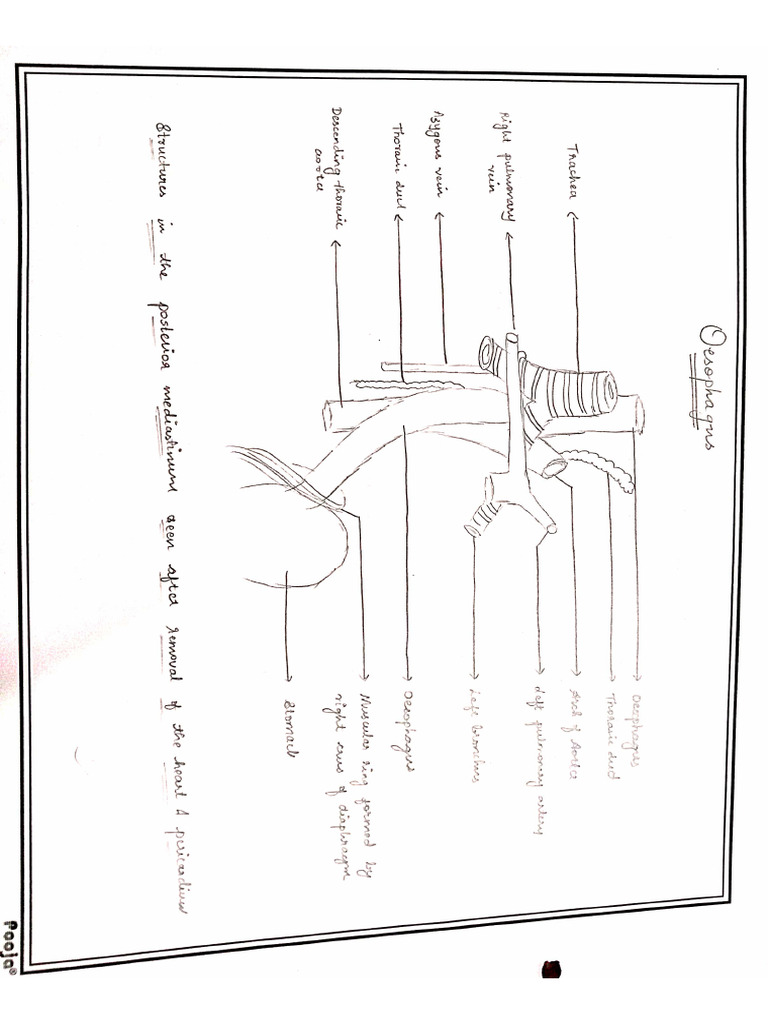 Oesophagus
Trachea
Right pulmonary
vein
Azygous vein
Thoracic duct
Descending thoracic
aorta
Oesophagus
Thoracic duct
Arch of Aorta
Left pulmonary artery
Left bronchus
Oesophagus
Muscular ring formed by
right crus of diaphragm
Stomach
Structures in the posterior mediastinum seen after removal of the heart & pericardium
Pooja®